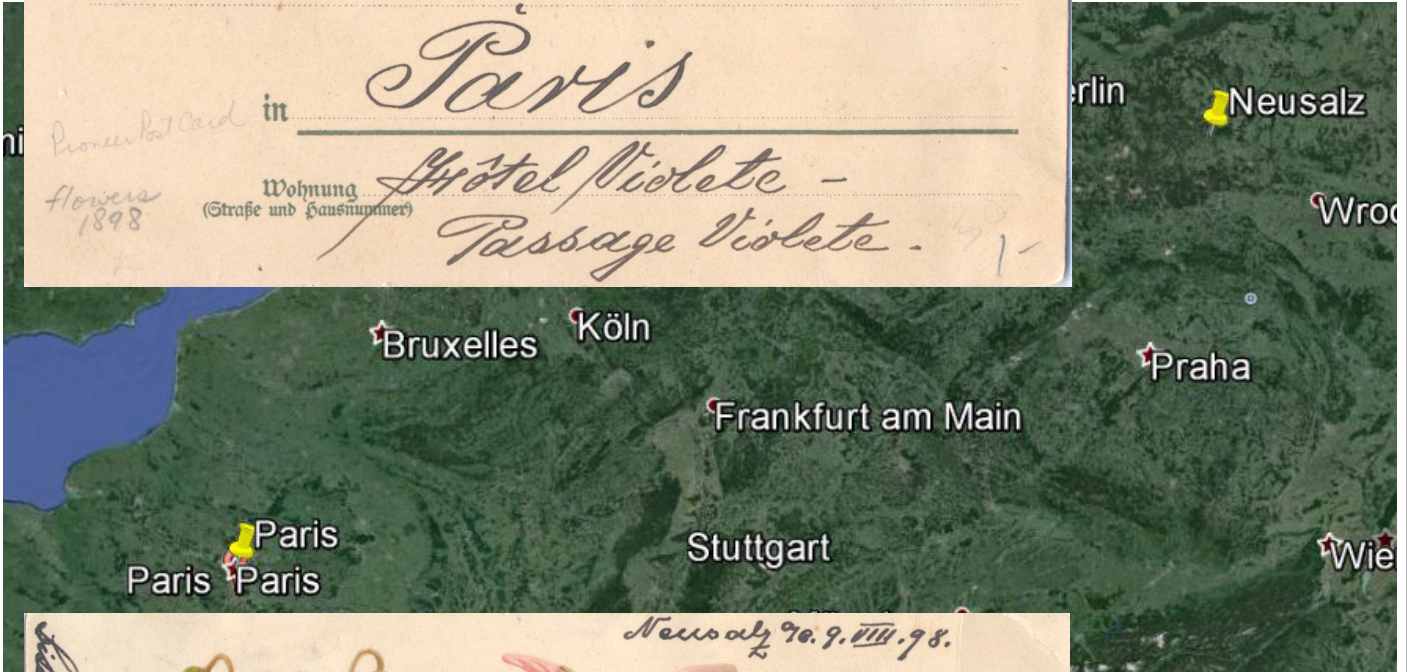 Paris
in
Pioneer Post Card
flowers
1898
Wohnung
(Straße und Hausnummer)
Hôtel Violete -
Passage Violete.
1-
erlin
Neusalz
Wroc
Bruxelles
Köln
Praha
Frankfurt am Main
Paris
Stuttgart
Paris
Paris
Wie
Neusalz 9. VIII. 98.